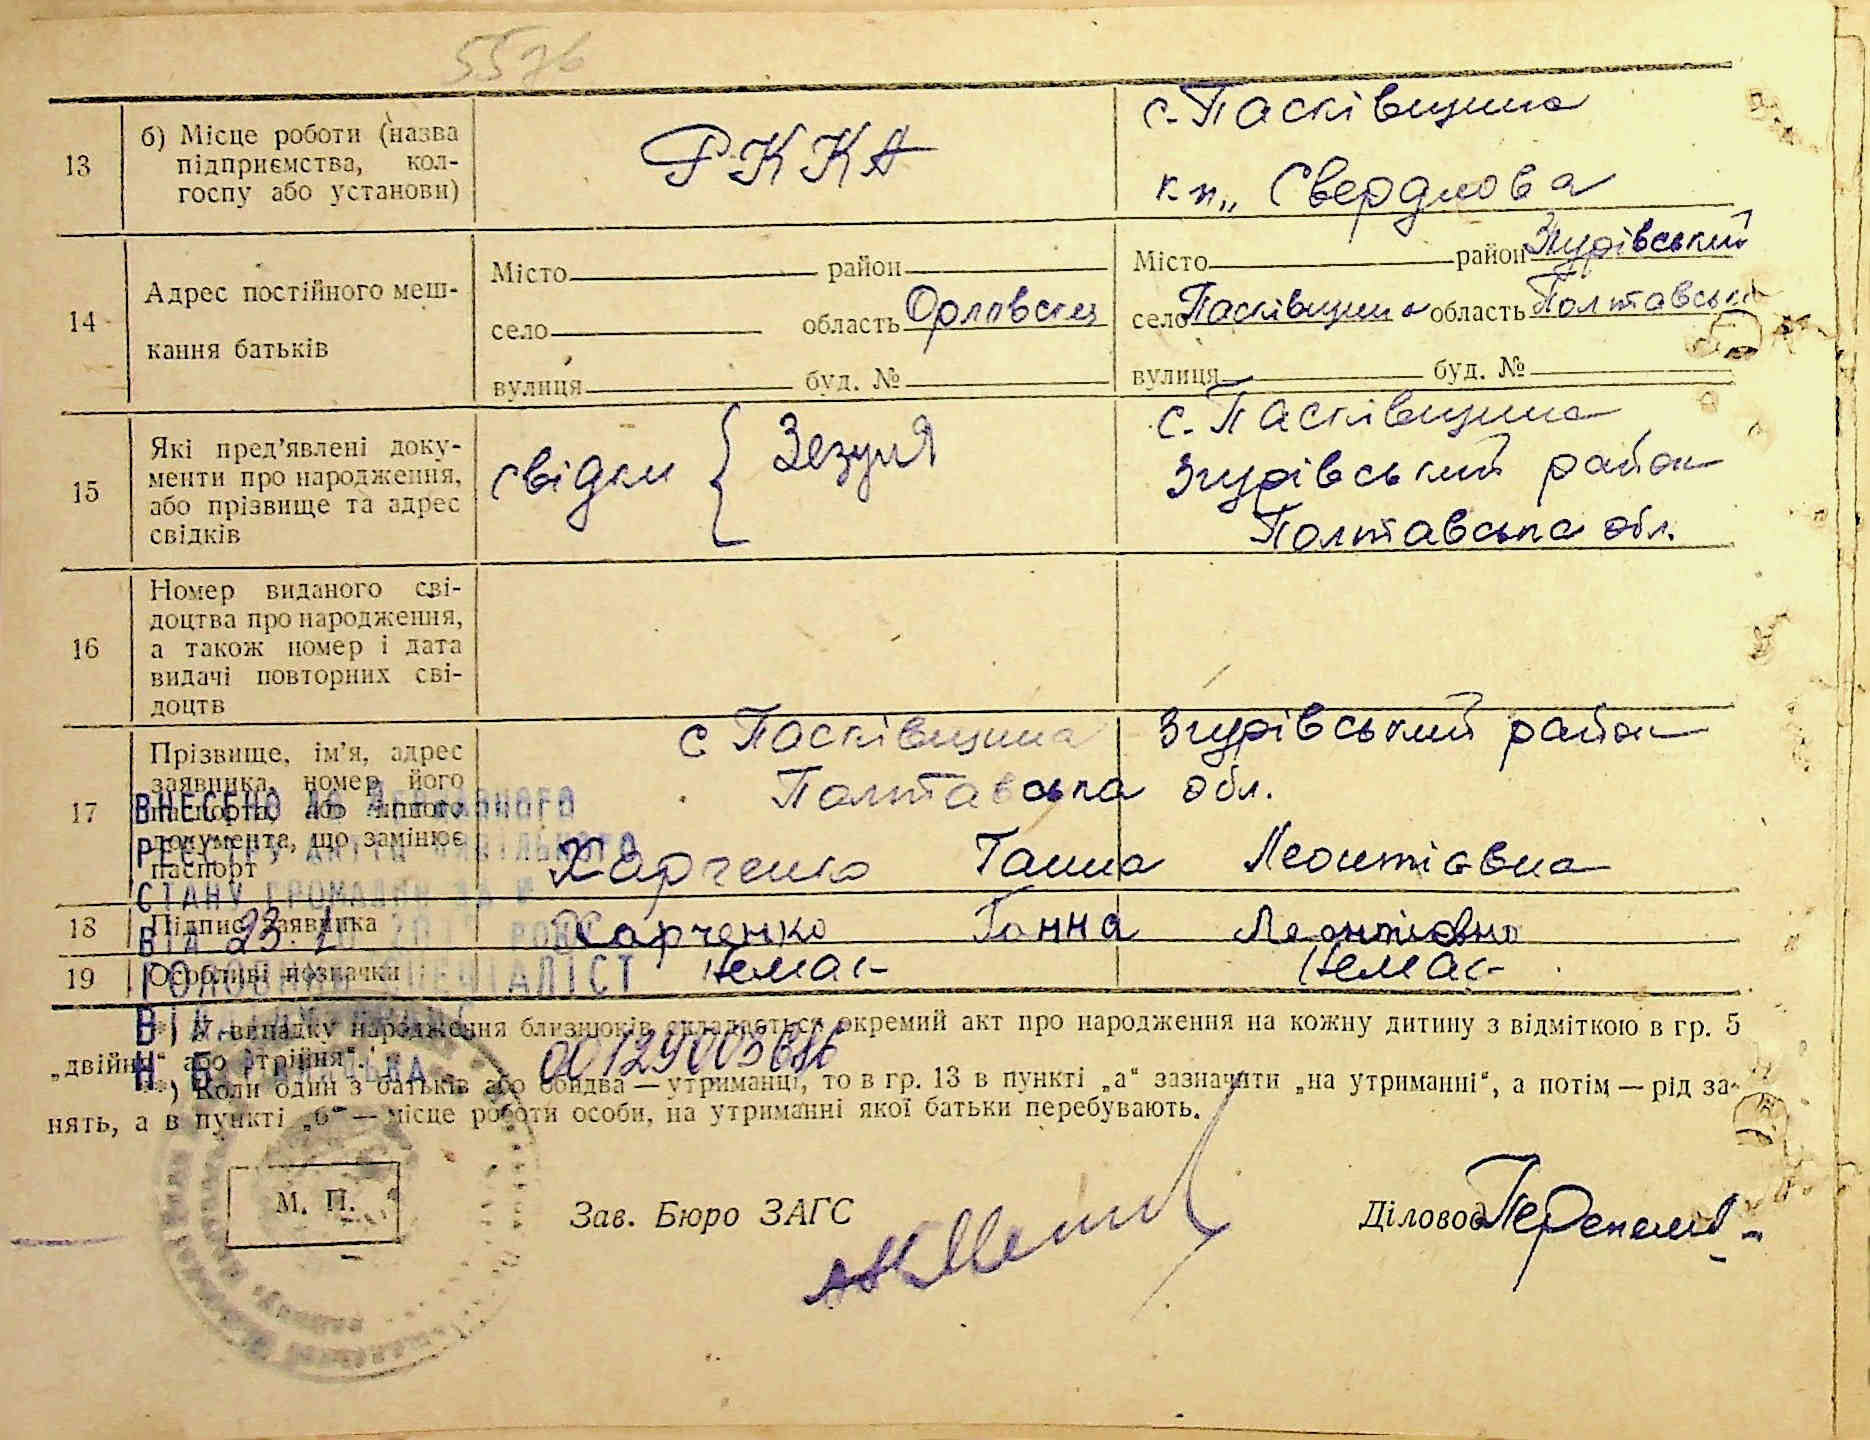 5576
13 б) Місце роботи (назва підприємства, кол-
госпу або установи)
РККА
с. Пасківщина
к-п „Свердлова
14 Адрес постійного меш-
кання батьків
Місто район
село область Орловська
вулиця буд. №
Місто район Згурівський
село Пасківщина область Полтавська
вулиця буд. №
15 Які пред’явлені доку-
менти про народження,
або прізвище та адрес
свідків
свідки { Зезуля
с. Пасківщина
Згурівський район
Полтавська обл.
16 Номер виданого сві-
доцтва про народження,
а також номер і дата
видачі повторних сві-
доцтв
17 Прізвище, ім’я, адрес
заявника, номер його
паспорта, або іншого
документа, що замінює
паспорт
с. Пасківщина Згурівський район
Полтавська обл.
Харченко Ганна Леонтієвна
18 Підпис заявника
Харченко Ганна Леонтієвна
19 Особливі позначки
Немає Немає
ВНЕСЕНО ДО ДЕРЖАВНОГО
РЕЄСТРУ АКТІВ ЦИВІЛЬНОГО
СТАНУ ГРОМАДЯН ЗА №
ВІД 23. РОКУ
ГОЛОВНИЙ СПЕЦІАЛІСТ
*) У випадку народження близнюків складається окремий акт про народження на кожну дитину з відміткою в гр. 5
„двійня“ або „трійня“.
**) Коли один з батьків або обидва — утриманці, то в гр. 13 в пункті „а“ зазначити „на утриманні“, а потім — рід за-
нять, а в пункті „б“ — місце роботи особи, на утриманні якої батьки перебувають.
М. П.
Зав. Бюро ЗАГС
Діловод